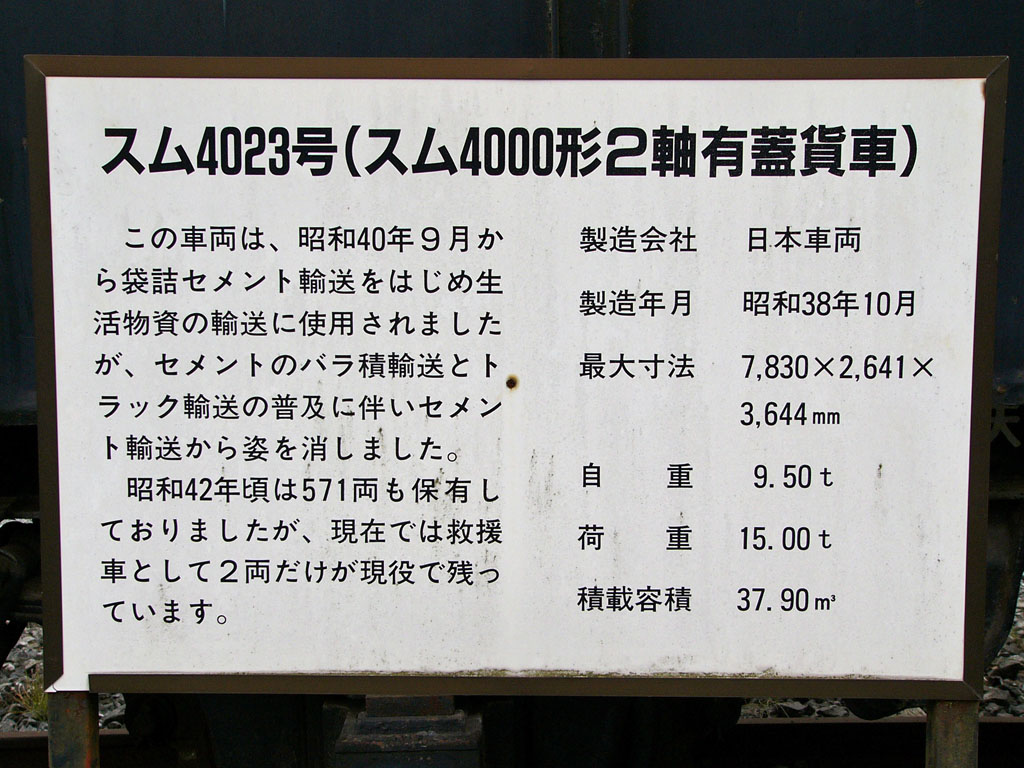 スム4023号(スム4000形2軸有蓋貨車)
この車両は、昭和40年9月か
ら袋詰セメント輸送をはじめ生
活物資の輸送に使用されました
が、セメントのバラ積輸送とト
ラック輸送の普及に伴いセメン
ト輸送から姿を消しました。
昭和42年頃は571両も保有し
ておりましたが、現在では救援
車として2両だけが現役で残っ
ています。
製造会社 日本車両
製造年月 昭和38年10月
最大寸法 7,830×2,641×
3,644mm
自重 9.50t
荷重 15.00t
積載容積 37.90m³